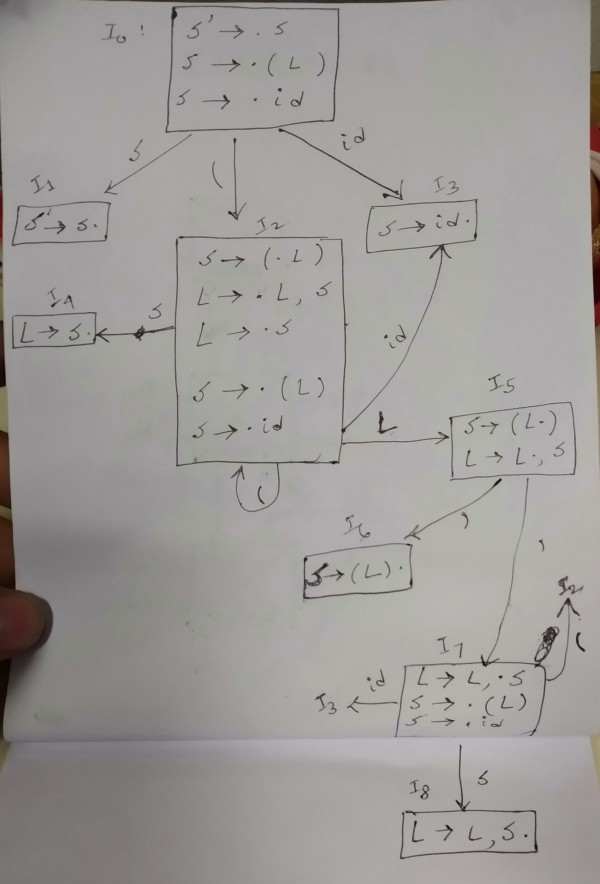 I0 :
S' → . S
S → . ( L )
S → . id
S
(
id
I1
S' → S .
I2
I3
S → id .
S → ( . L )
L → . L , S
L → . S
S → . ( L )
S → . id
I4
L → S .
S
id
L
(
I5
S → ( L . )
L → L . , S
)
,
I6
S → ( L ) .
I2
(
I7
L → L , . S
S → . ( L )
S → . id
id
I3
S
I8
L → L , S .